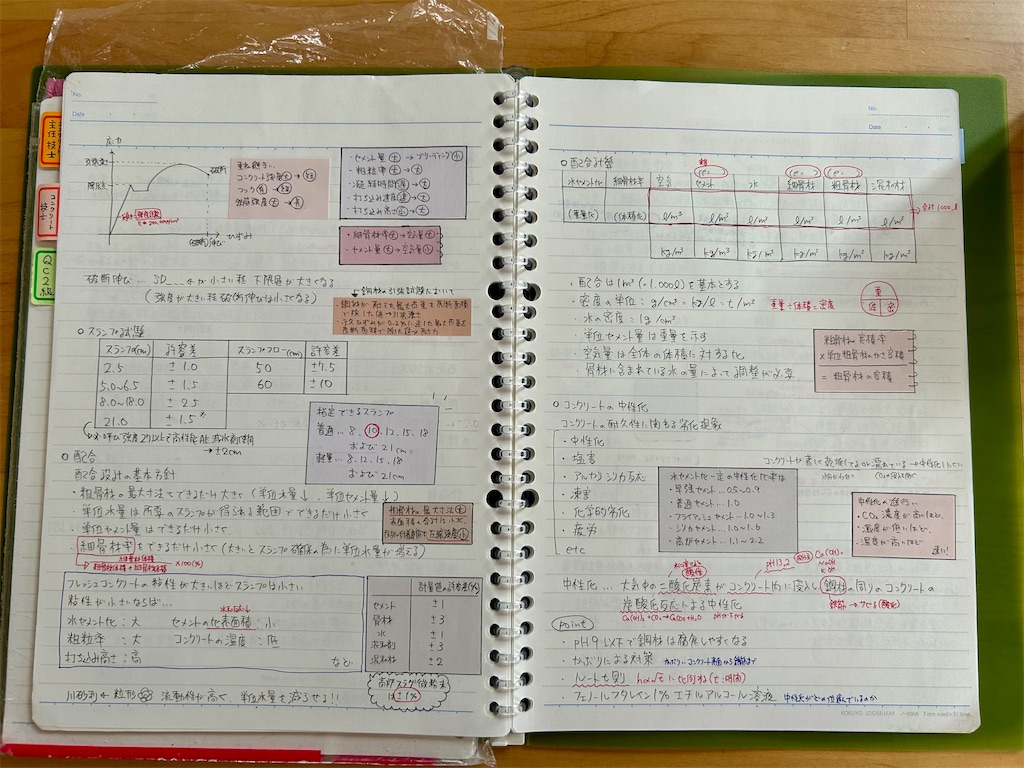 主任技士
コンクリート技士
QC2級
No.
Date
応力
破断
ひずみ
重ね継手…
コンクリート強度大→短
フック有→短
鉄筋強度大→長
・セメント量大→ブリーディング小
・粗粒率大→大
・凝結時間遅→大
・打ち込み速度速→大
・打ち込み高さ高→大
・細骨材率大→空気量大
・セメント量大→空気量小
破断伸び… SD___ 4が小さい程 下限値が大きくなる
(強度が大きい程破断伸びは小さくなる)
↓鋼材の引張試験において
○スランプ試験
スランプ(cm) 許容差 スランプフロー(cm) 許容差
2.5 ±1.0 50 ±7.5
5.0~6.5 ±1.5 60 ±10
8.0~18.0 ±2.5
21.0 ±1.5※
※呼び強度27以上で高性能AE減水剤使用
→±2cm
指定できるスランプ
普通… 8. 10. 12. 15. 18
および 21cm
軽量… 8. 12. 15. 18
および 21cm
○配合
配合設計の基本方針
・粗骨材の最大寸法はできるだけ大きく(単位水量↓、単位セメント量↓)
・単位水量は所要のスランプが得られる範囲でできるだけ小さく
・単位セメント量はできるだけ小さく
・細骨材率をできるだけ小さく(大きいとスランプ確保の為に単位水量が増える)
細骨材体積
細骨材体積+粗骨材体積
×100(%)
粗骨材の最大寸法大
フレッシュコンクリートの粘性が大きいほどスランプは小さい
粘性が小さいならば…
水セメント比:大 セメントの比表面積:小
粗粒率:大 コンクリートの温度:低
打ち込み高さ:高 など
計量値の許容差(%)
セメント ±1
骨材 ±3
水 ±1
混和剤 ±3
混和材 ±2
高炉スラグ微粉末
は±1%
川砂利←粒形 流動性が高く、単位水量を減らせる!!
No.
Date
○配合計算
水セメント比 細骨材率 空気 セメント 水 細骨材 粗骨材 混和材
(重量比) (体積比) l/m³ l/m³ l/m³ l/m³ l/m³ l/m³
→合計1000L
kg/m³ kg/m³ kg/m³ kg/m³ kg/m³
・配合は1m³(=1.000ℓ)を基本とする
・密度の単位:g/cm³=kg/ℓ=t/m³
重量÷体積=密度
重
体 密
・水の密度:1g/cm³
・単位セメント量は重量を示す
・空気量は全体の体積に対する比
・骨材に含まれている水の量によって調整が必要
粗骨材の実積率
×単位粗骨材のかさ容積
=粗骨材の容積
○コンクリートの中性化
コンクリートの耐久性に関する劣化現象
・中性化
・塩害
・アルカリシリカ反応
・凍害
・化学的劣化
・疲労
etc
水セメント比一定の中性化比率は
・早強セメント…0.5~0.9
・普通セメント…1.0
・フライアッシュセメント…1.0~1.3
・シリカセメント…1.0~1.6
・高炉セメント…1.1~2.2
中性化の進行…
・CO₂濃度が高いほど、
・湿度が低いほど、
・温度が高いほど
速い!
酸性
pH13.2
Ca(OH)₂
NaOH
KOH
中性化… 大気中の二酸化炭素がコンクリート内に侵入し鋼材の周りのコンクリートの
炭酸化反応による中性化
鉄筋→サビる(酸化)
Ca(OH)₂+CO₂→CaCO₃+H₂O
point
・pH9以下で鋼材は腐食しやすくなる
・かぶりによる対策
かぶり…コンクリート表面から鋼材まで
・ルートt則 h∝√tに比例する(t:時間)
・フェノールフタレイン1%エチルアルコール溶液
中性化がどの位進んでいるのか